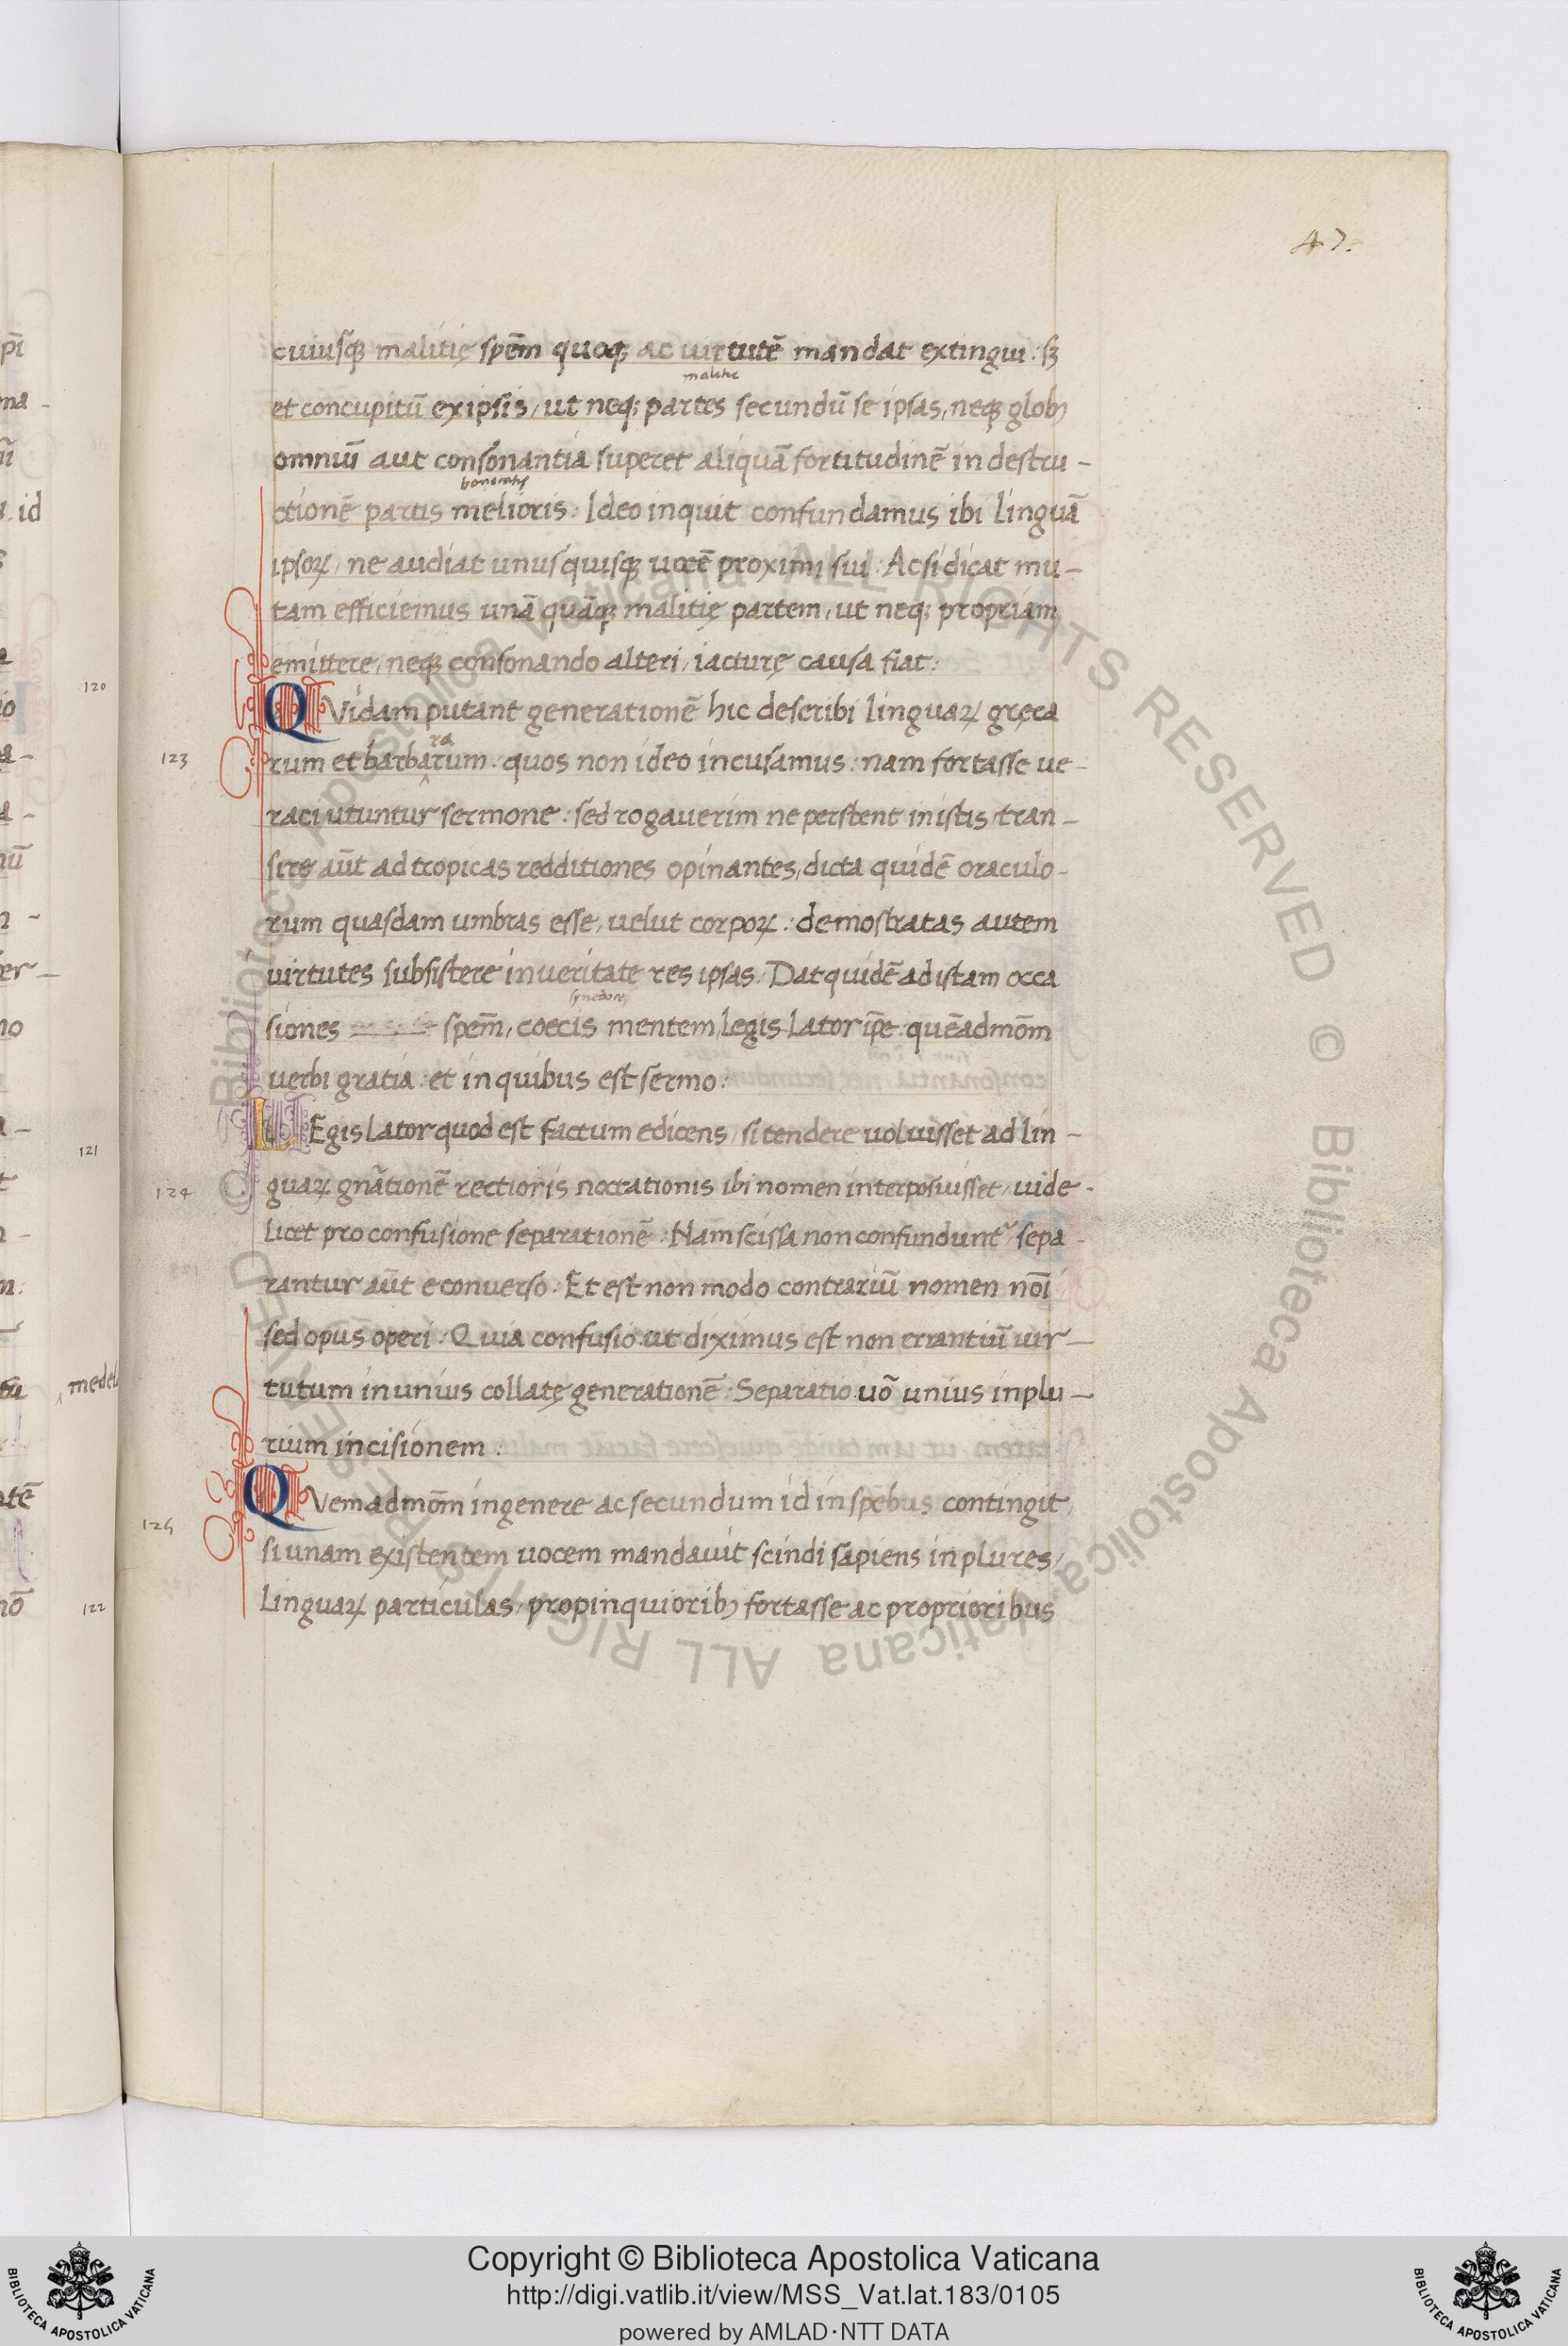 47.
cuiusq3 malitię spēm quoq3 ac uirtutē mandat extingui: s3
malitie
et concupitū ex ipsis, ut neq; partes secundū se ipsas, neq3 glob9
omniū aut consonantia superet aliquā fortitudinē in destru-
bonitatis
ctionē partis melioris: Ideo inquit confundamus ibi linguā
ipsoꝝ, ne audiat unusquisq3 uocē proximi sui: Ac si dicat mu-
tam efficiemus unā quāq3 malitię partem, ut neq; propriam
emittere, neq3 consonando alteri, iacturę causa fiat:
QVidam putant generationē hic describi linguaꝝ gręca
ra
123 rum et barbarum: quos non ideo incusamus: nam fortasse ue-
raci utuntur sermone: sed rogauerim ne perstent in istis, tran-
sire aūt ad tropicas redditiones opinantes, dicta quidē oraculo-
rum quasdam umbras esse, uelut corpoꝝ: demostratas autem
uirtutes subsistere in ueritate res ipsas: Dat quidē ad istam occa
siones spēm, coecis mentem, Legis Lator ip̄e: quēadmōm
uerbi gratia: et in quibus est sermo:
LEgis Lator quod est factum edicens, si tendere uoluisset ad lin-
124 guaꝝ gnātionē rectioris notationis ibi nomen interposuisset, uide-
licet pro confusione separationē: Nam scissa non confundunt~, sepa-
rantur aūt e conuerso: Et est non modo contrariū nomen nōi
sed opus operi: Quia confusio ut diximus est non errantiū uir-
tutum in unius collatę generationē: Separatio uō unius in plu-
rium incisionem:
125 QVemadmōm in genere ac secundum id in spebus contingit,
si unam existentem uocem mandauit scindi sapiens in plures,
Linguaꝝ particulas, propinquiorib9 fortasse ac proprioribus
120
121
122
medel
id
BIBLIOTECA APOSTOLICA VATICANA
Copyright © Biblioteca Apostolica Vaticana
http://digi.vatlib.it/view/MSS_Vat.lat.183/0105
powered by AMLAD·NTT DATA
BIBLIOTECA APOSTOLICA VATICANA